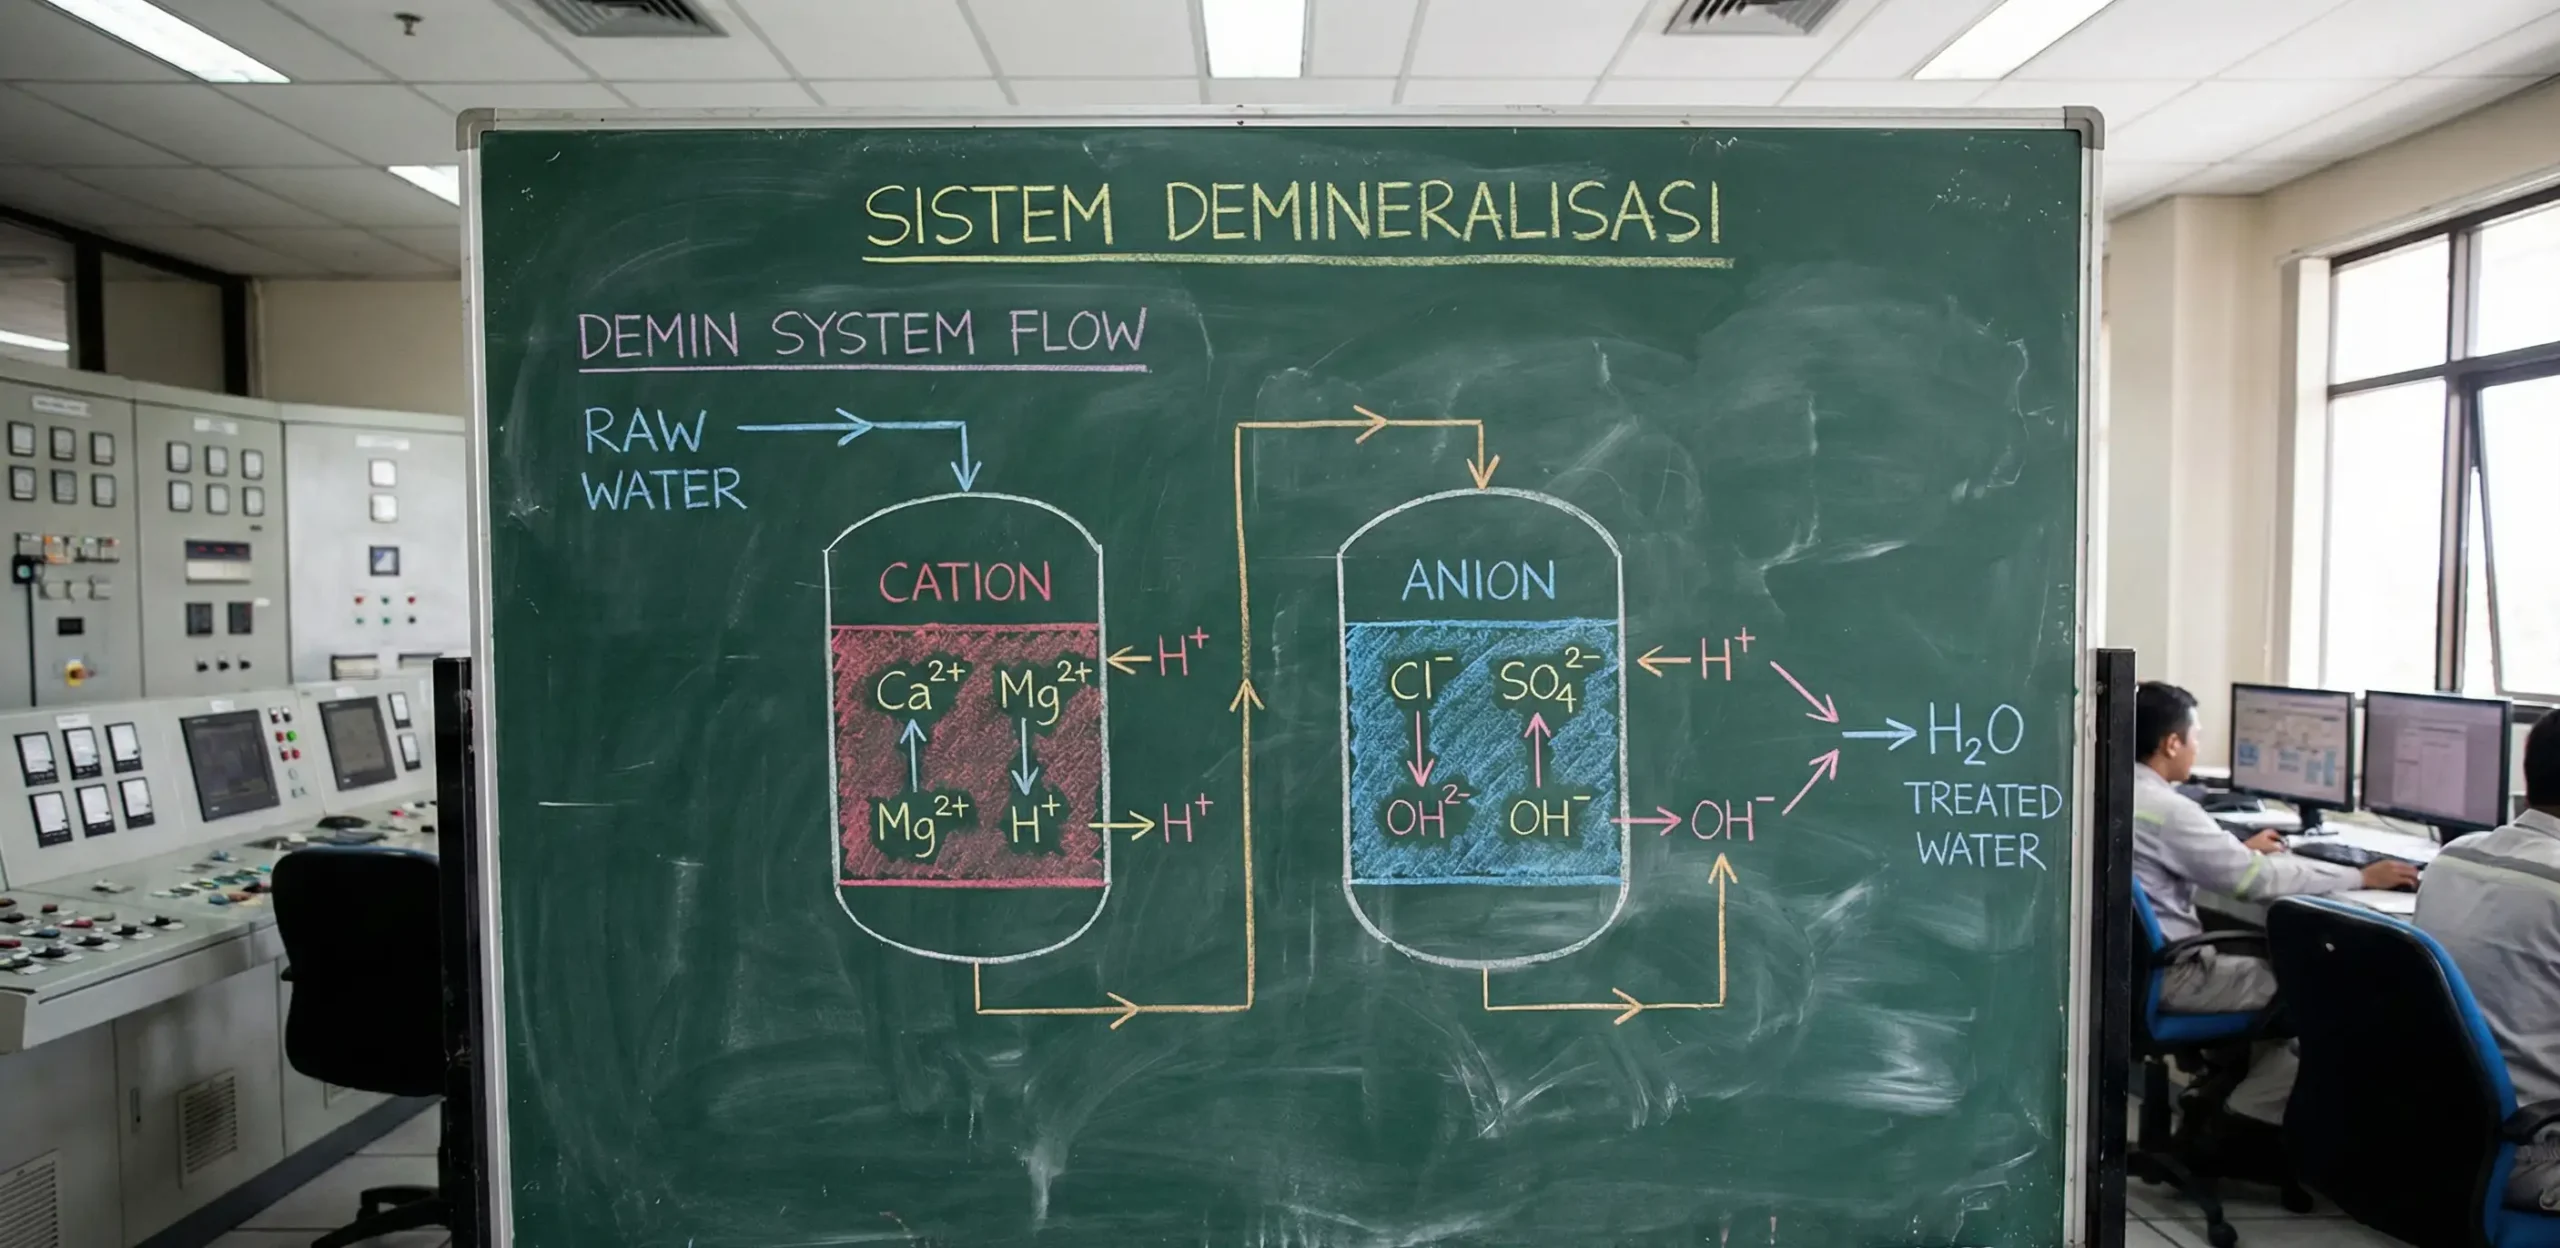 SISTEM DEMINERALISASI
DEMIN SYSTEM FLOW
RAW
WATER
CATION
H⁺
Ca²⁺ Mg²⁺
Mg²⁺ H⁺
H⁺
ANION
H⁺
Cl⁻ SO₄²⁻
OH²⁻ OH⁻
OH⁻
H₂O
TREATED
WATER